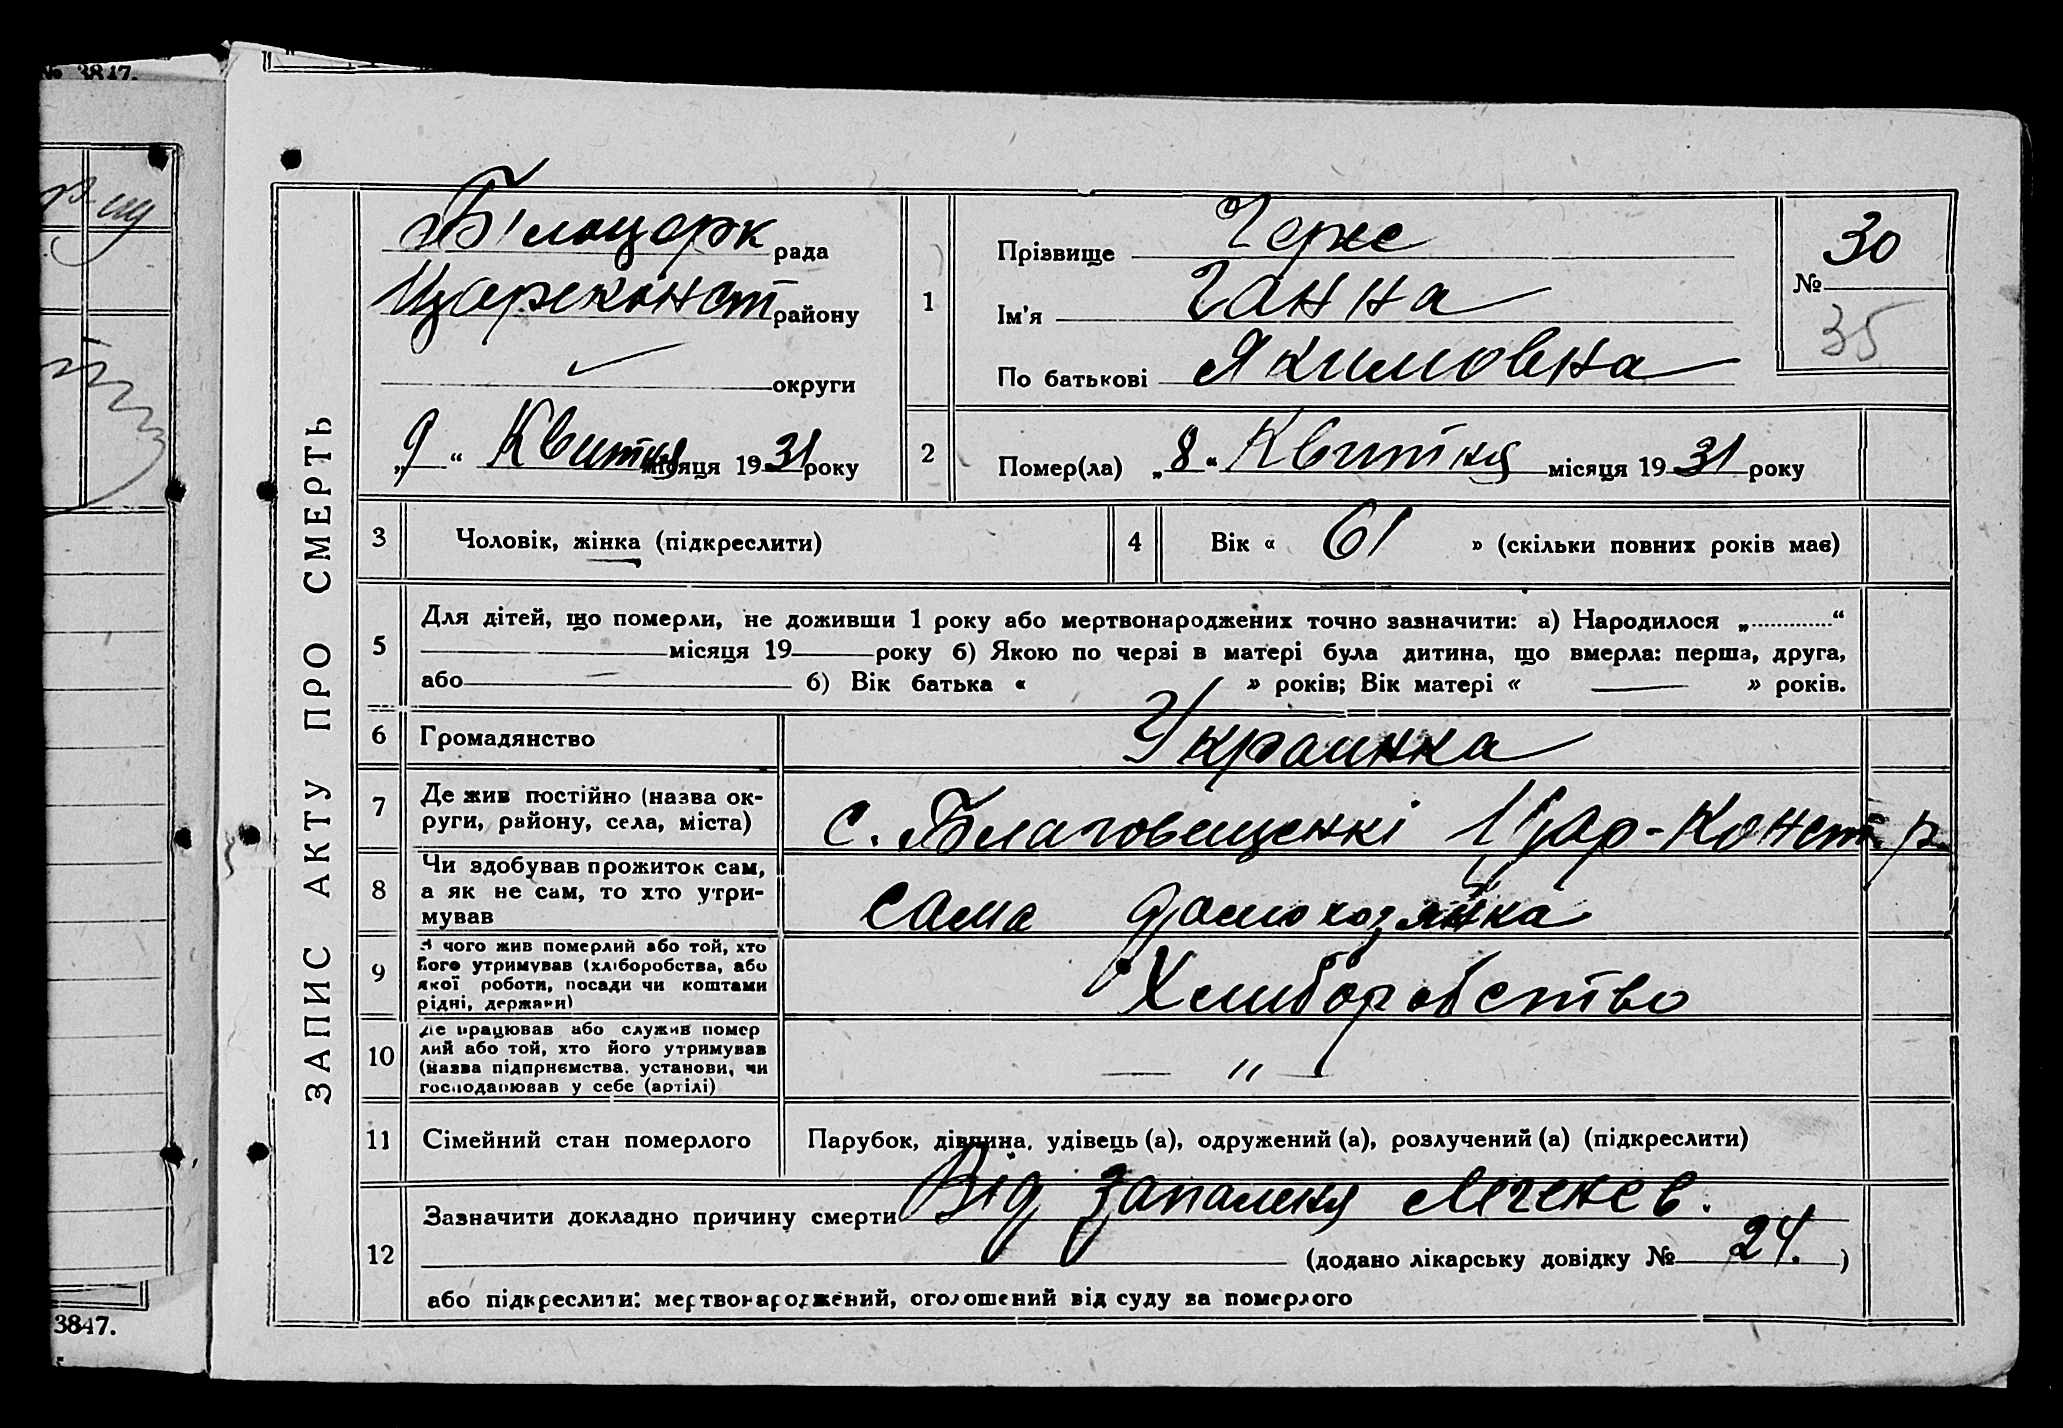 № 3847.
ЗАПИС АКТУ ПРО СМЕРТЬ
Білоцерк рада
Цареконст району
округи
„9“ Квитня місяця 1931 року
1
Прізвище
Ім'я Ганна
По батькові Якимовна
№ 30
35
2
Помер(ла) „8“ Квитня місяця 1931 року
3
Чоловік, жінка (підкреслити)
4
Вік « 61 » (скільки повних років має)
5
Для дітей, що померли, не доживши 1 року або мертвонароджених точно зазначити: а) Народилося „............“
місяця 19 року б) Якою по черзі в матері була дитина, що вмерла: перша, друга,
або б) Вік батька « » років; Вік матері « — » років.
6
Громадянство
Украинка
7
Де жив постійно (назва ок-
руги, району, села, міста)
с. Благовещенкі Цар-Конст. р.
8
Чи здобував прожиток сам,
а як не сам, то хто утри-
мував
сама домохозяйка
9
З чого жив померлий або той, хто
його утримував (хліборобства, або
якої роботи, посади чи коштами
рідні, держави)
Хлиборобство
10
Де працював або служив помер
лий або той, хто його утримував
(назва підприємства, установи, чи
господарював у себе (артілі)
— „ —
11
Сімейний стан померлого
Парубок, дівчина, удівець (а), одружений (а), розлучений (а) (підкреслити)
12
Зазначити докладно причину смерти Від запаленя легенев.
(додано лікарську довідку № 24. )
або підкреслити: мертвонароджений, оголошений від суду за померлого
3847.